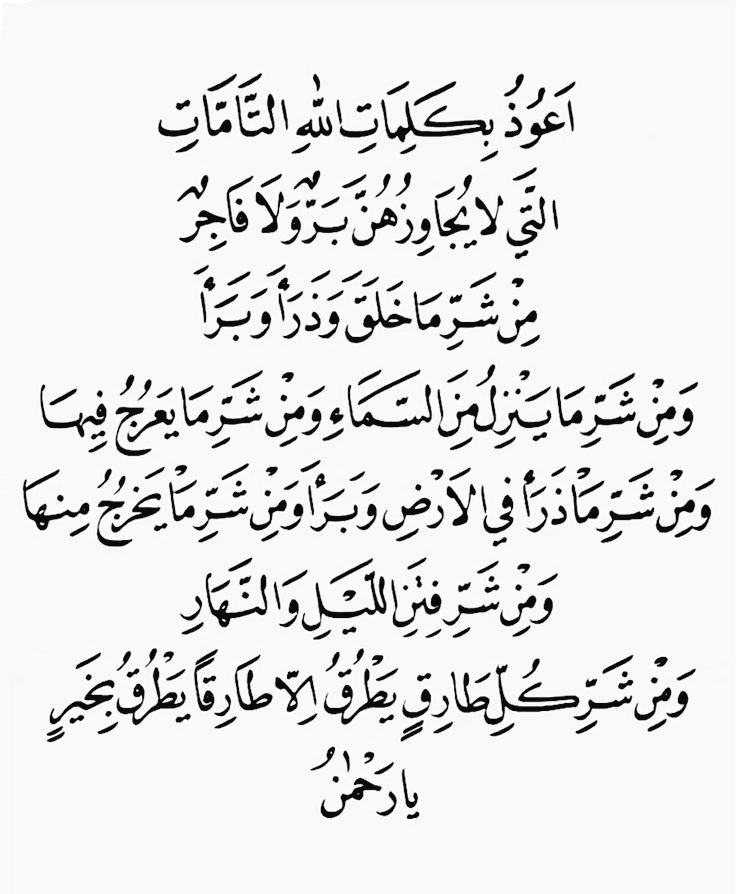 اَعُوْذُ بِكَلِمَاتِ اللّٰهِ التَّامَّاتِ
الَّتِي لَا يُجَاوِزُهُنَّ بَرٌّ وَلَا فَاجِرٌ
مِنْ شَرِّ مَا خَلَقَ وَذَرَأَ وَبَرَأَ
وَمِنْ شَرِّ مَا يَنْزِلُ مِنَ السَّمَاءِ وَمِنْ شَرِّ مَا يَعْرُجُ فِيهَا
وَمِنْ شَرِّ مَا ذَرَأَ فِي الْاَرْضِ وَبَرَأَ وَمِنْ شَرِّ مَا يَخْرُجُ مِنهَا
وَمِنْ شَرِّ فِتَنِ اللَّيْلِ وَالنَّهَارِ
وَمِنْ شَرِّ كُلِّ طَارِقٍ يَطْرُقُ اِلَّا طَارِقاً يَطْرُقُ بِخَيرٍ
يا رَحْمٰنُ